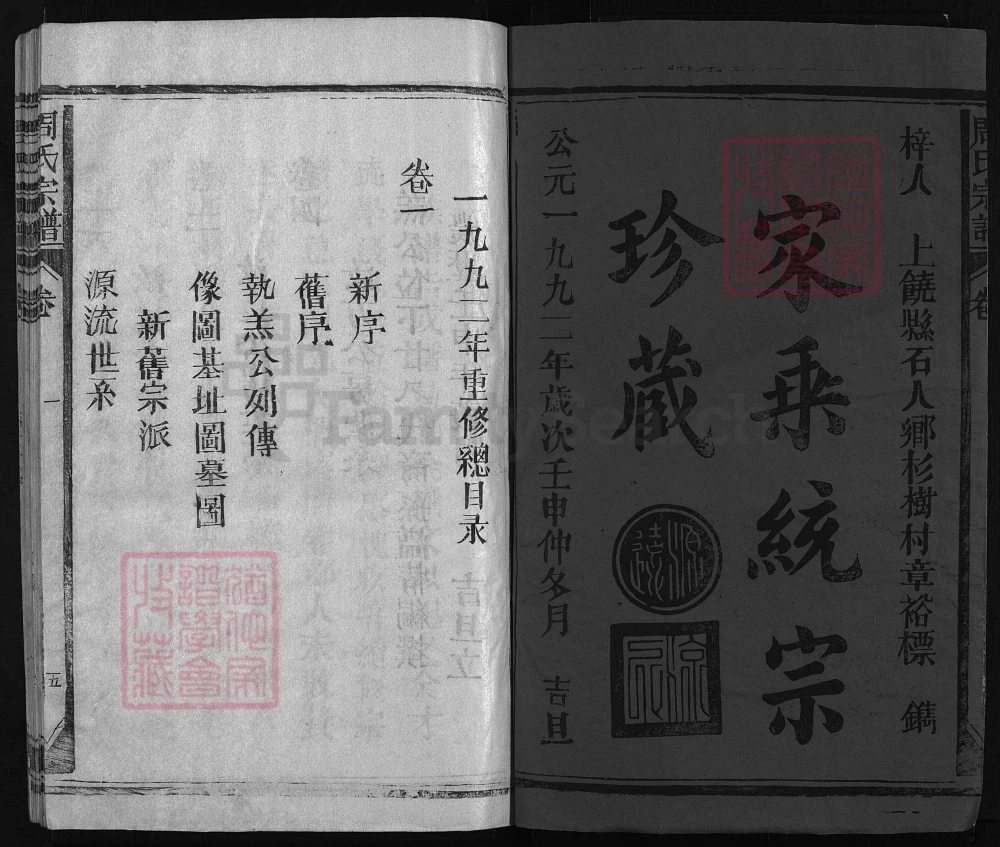 周氏宗譜
卷
梓人 上饒縣石人鄉杉樹村章裕標 鐫
家乘統宗
珍藏
公元一九九二年歲次壬申仲冬月 吉旦
一九九二年重修總目录
卷一
新序
舊序
執羔公列傳
像圖基址圖墓図
新舊宗派
源流世系
周氏宗譜
卷
一
五
FamilySearch